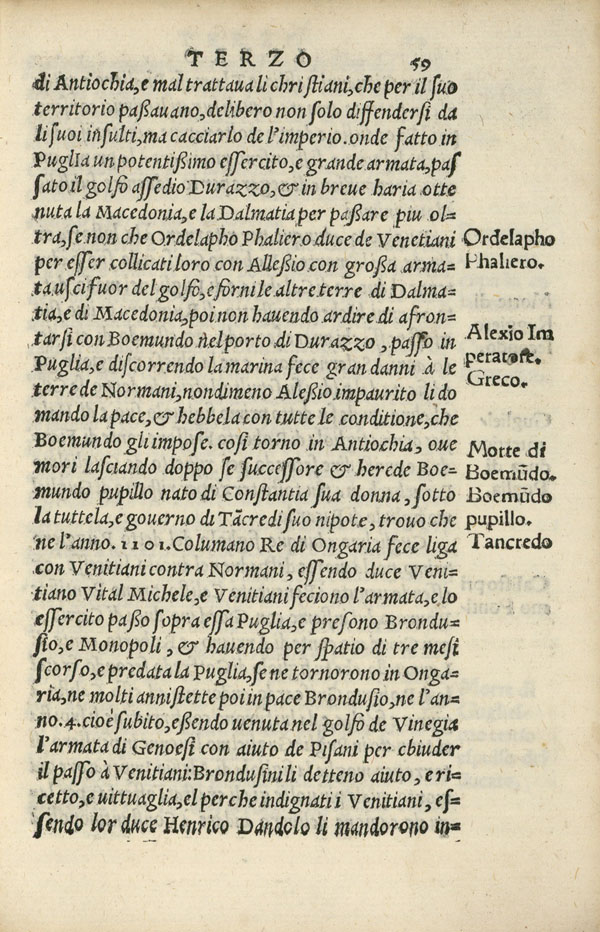 TERZO 59
di Antiochia, e mal trattaua li christiani, che per il suo
territorio paßauano, delibero non solo diffendersi da
li suoi insulti, ma cacciarlo de l'imperio. onde fatto in
Puglia un potentißimo essercito, e grande armata, pas
sato il golfo assedio Durazzo, & in breue haria otte
nuta la Macedonia, e la Dalmatia per paßare piu ol=
tra, se non che Ordelapho Phaliero duce de Venetiani
Ordelapho
per esser collicati loro con Alleßio con großa arma=
Phaliero.
ta usci fuor del golfo, e forni le altre terre di Dalma=
tia, e di Macedonia, poi non hauendo ardire di afron=
tarsi con Boemundo nel porto di Durazzo, passo in
Alexio Im
Puglia, e discorrendo la marina fece gran danni à le
peratore.
terre de Normani, nondimeno Aleßio impaurito li do
Greco.
mando la pace, & hebbela con tutte le conditione, che
Boemundo gli impose. così torno in Antiochia, oue
Morte di
mori lasciando doppo se successore & herede Boe=
Boemũdo.
mundo pupillo nato di Constantia sua donna, sotto
Boemũdo
la tuttela, e gouerno di Tãcredi suo nipote, trouo che
pupillo.
ne l'anno. 1101. Columano Re di Ongaria fece liga
Tancredo
con Venitiani contra Normani, essendo duce Veni=
tiano Vital Michele, e Venitiani feciono l'armata, e lo
essercito paßo sopra essa Puglia, e presono Brondu=
sio, e Monopoli, & hauendo per spatio di tre mesi
scorso, e predata la Puglia, se ne tornorono in Onga=
ria, ne molti anni stette poi in pace Brondusio, ne l'an=
no. 4. cioè subito, eßendo uenuta nel golfo de Vinegia
l'armata di Genoesi con aiuto de Pisani per chiuder
il passo à Venitiani: Brondusini li detteno aiuto, e ri=
cetto, e uittuaglia, el perche indignati i Venitiani, es=
sendo lor duce Henrico Dandolo li mandorono in=